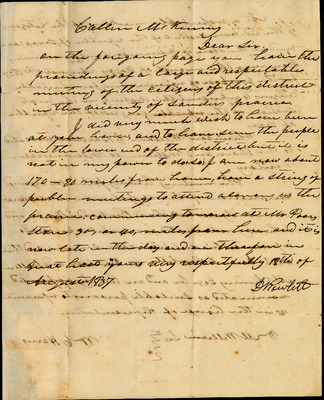 Collin McKinney
Dear Sir,
on the foregoing page you have the
proceedings of a large and respectable
meeting of the citizens of this district
in the vicinity of Sanders prairie
I did very much wish to have been
at your house, and to have seen the people
in the lower end of the district but it is
not in my power to do so, I am now about
from home, have a string of
public meetings to attend along up the
prairie, commencing tomorrow at
Store 30, or 40, miles from here, and it is
now late in the day and am therefore in
great haste yours very respectfully 12th of
August 1837.
D Rowlett